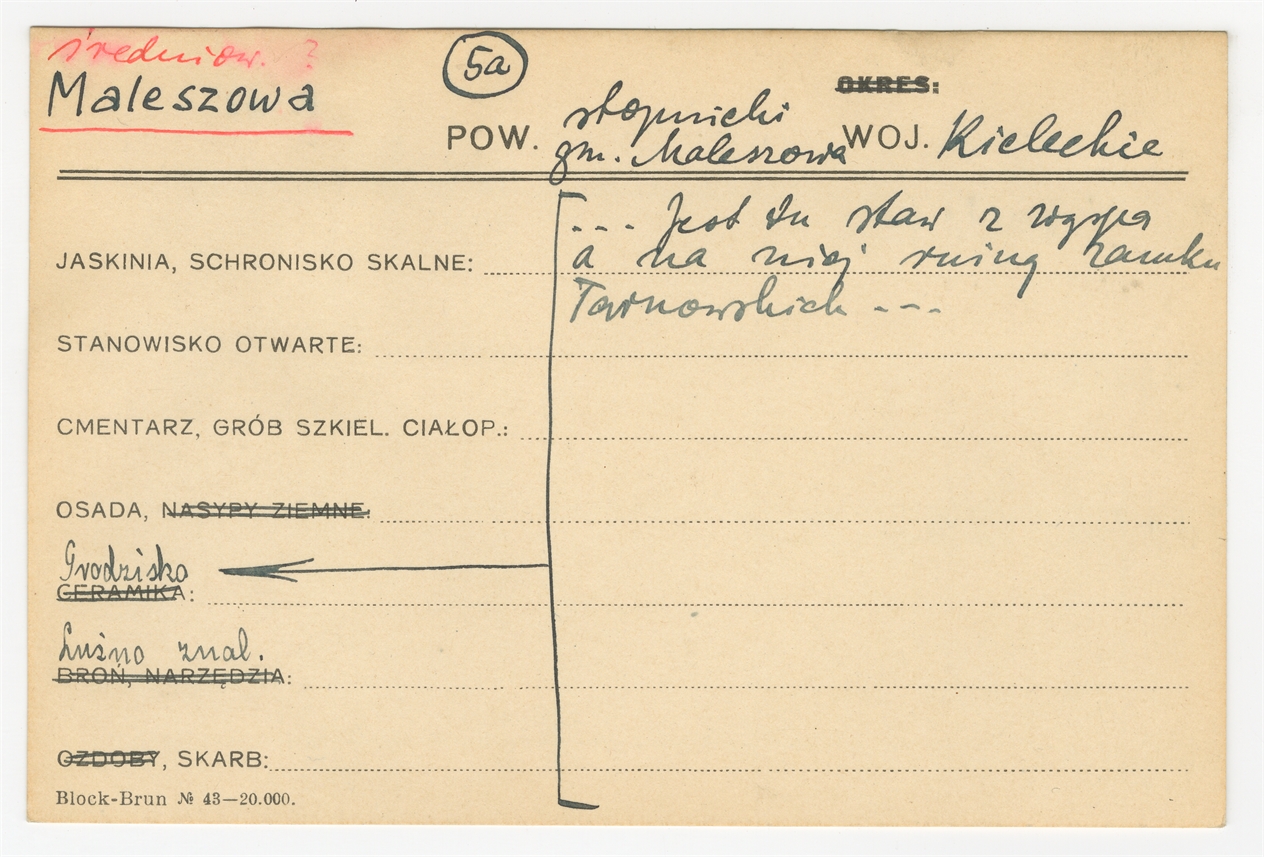 średniow. ?
Maleszowa
5a
OKRES:
POW. stopnicki
gm. Maleszowa
WOJ. Kieleckie
... Jest tu staw z wyspą
JASKINIA, SCHRONISKO SKALNE: a na niej ruiny zamku
Tarnowskich ---
STANOWISKO OTWARTE:
CMENTARZ, GRÓB SZKIEL. CIAŁOP.:
OSADA, NASYPY ZIEMNE:
Grodzisko
CERAMIKA:
Luźno znal.
BROŃ, NARZĘDZIA:
OZDOBY, SKARB:
Block-Brun № 43—20.000.